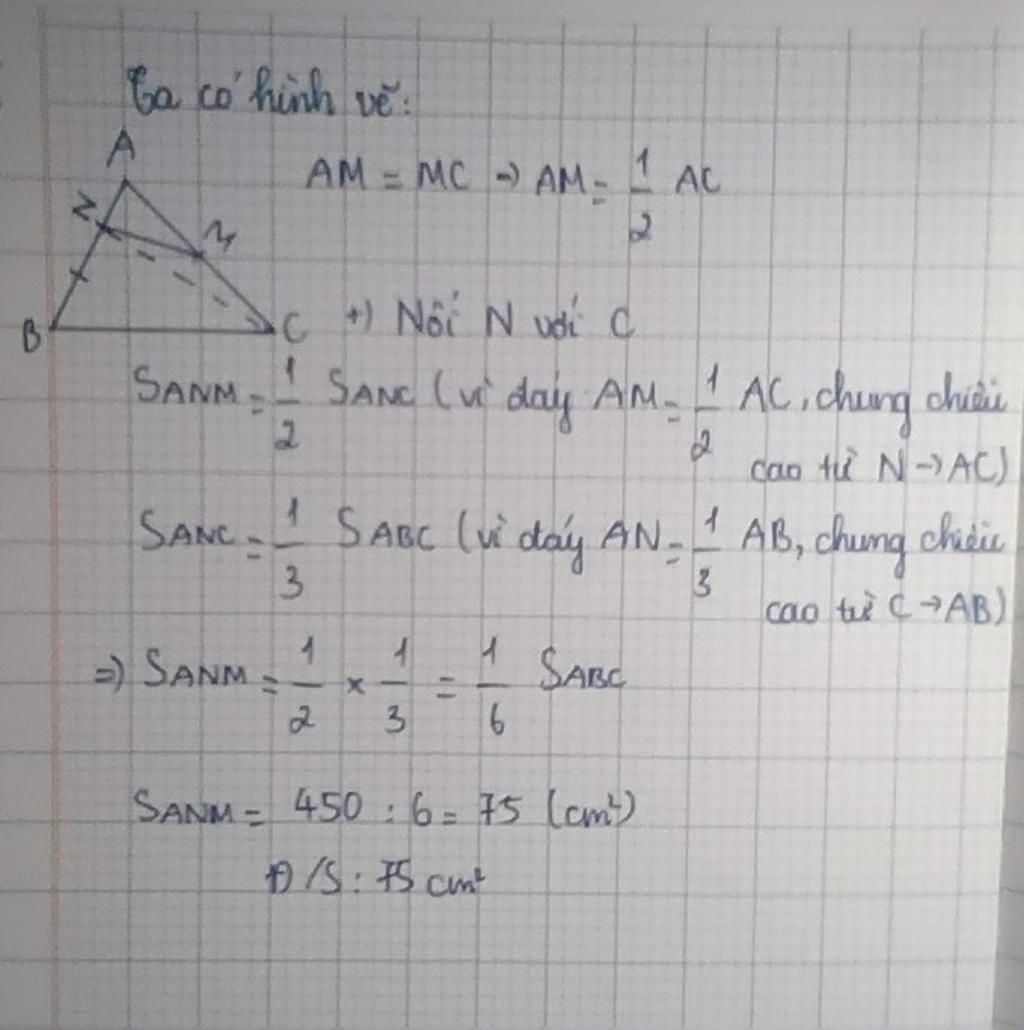 Ta có hình vẽ:
A
AM = MC → AM = 1/2 AC
N
M
B
C
+) Nối N với C
SANM = 1/2 SANC (vì đáy AM = 1/2 AC, chung chiều
cao từ N → AC)
SANC = 1/3 SABC (vì đáy AN = 1/3 AB, chung chiều
cao từ C → AB)
=> SANM = 1/2 x 1/3 = 1/6 SABC
SANM = 450 : 6 = 75 (cm²)
Đ/S : 75 cm²